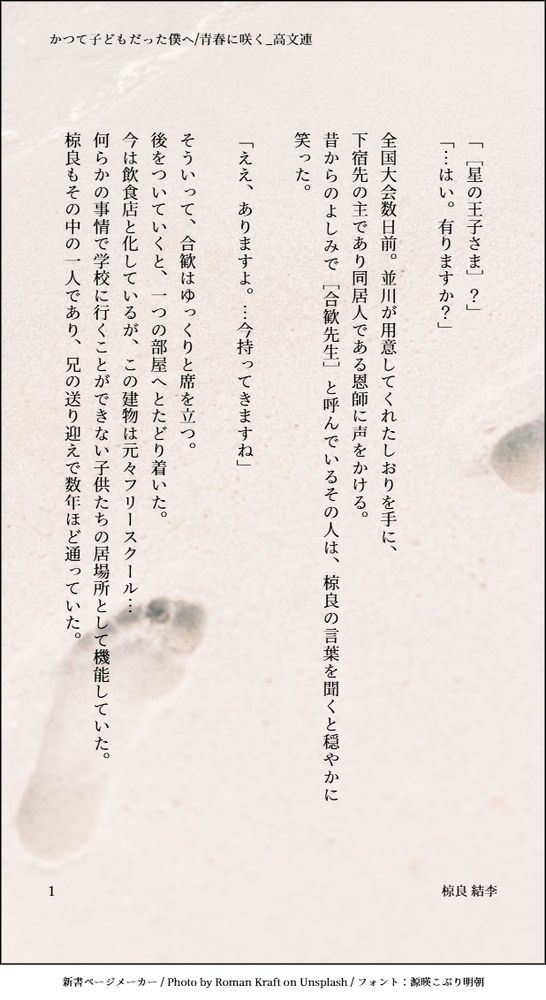 かつて子どもだった僕へ/青春に咲く_高文連
「［星の王子さま］？」
「…はい。有りますか？」
全国大会数日前。並川が用意してくれたしおりを手に、
下宿先の主であり同居人である恩師に声をかける。
昔からのよしみで［合歓先生］と呼んでいるその人は、椋良の言葉を聞くと穏やかに
笑った。
「ええ、ありますよ。…今持ってきますね」
そういって、合歓はゆっくりと席を立つ。
後をついていくと、一つの部屋へとたどり着いた。
今は飲食店と化しているが、この建物は元々フリースクール…
何らかの事情で学校に行くことができない子供たちの居場所として機能していた。
椋良もその中の一人であり、兄の送り迎えで数年ほど通っていた。
1
椋良 結李
新書ページメーカー / Photo by Roman Kraft on Unsplash / フォント：源暎こぶり明朝